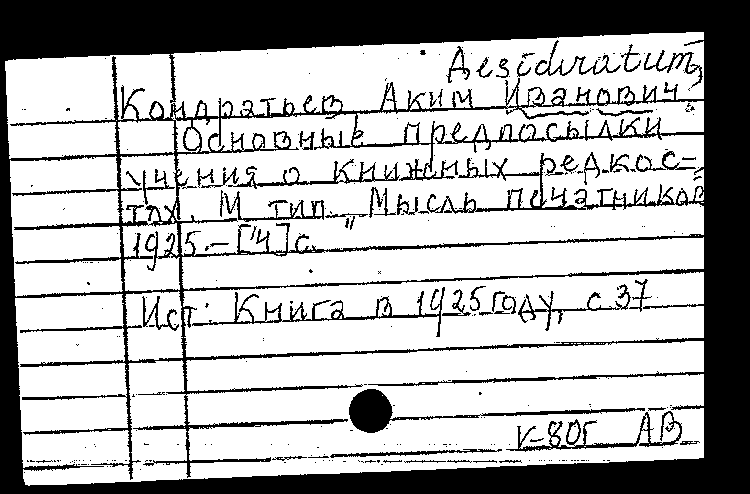 Desiduratum,
Кондратьев Аким Иванович.
Основные предпосылки
учения о книжных редкос=
тях. М тип. "Мысль печатников"
1925.- [4] с.
Ист: Книга в 1925 году, с 37
V-80г АВ